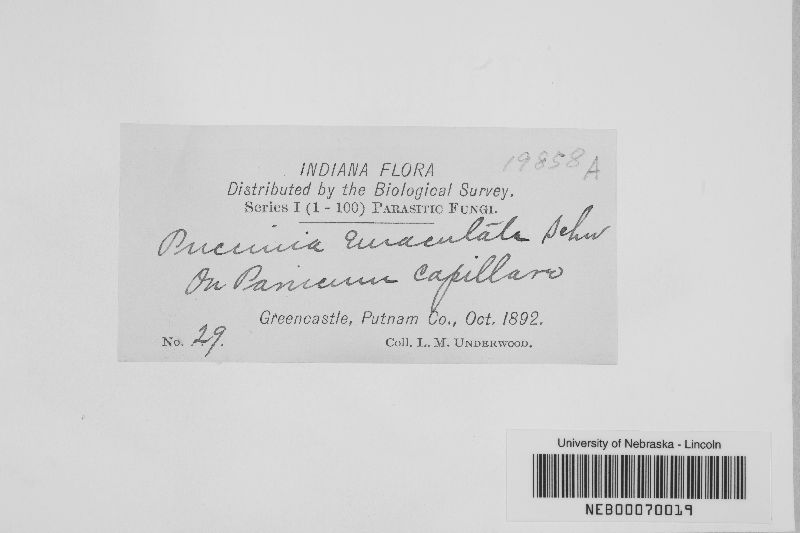 19858 A
INDIANA FLORA
Distributed by the Biological Survey.
Series I (1 - 100) Parasitic Fungi.
Puccinia emaculata Schw
On Panicum capillare
Greencastle, Putnam Co., Oct. 1892.
No. 29.
Coll. L. M. Underwood.
University of Nebraska - Lincoln
NEB00070019